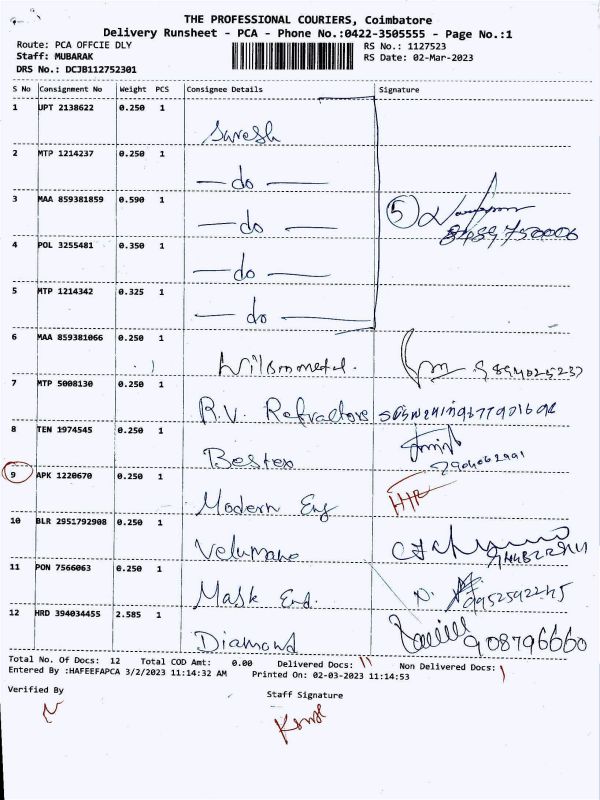 THE PROFESSIONAL COURIERS, Coimbatore
Delivery Runsheet - PCA - Phone No.:0422-3505555 - Page No.:1
Route: PCA OFFCIE DLY
RS No.: 1127523
Staff: MUBARAK
RS Date: 02-Mar-2023
DRS No.: DCJB112752301
S No Consignment No Weight PCS Consignee Details Signature
1 UPT 2138622 0.250 1
Suresh
2 MTP 1214237 0.250 1
— do —
3 MAA 859381859 0.590 1
— do —
5
8489750006
4 POL 3255481 0.350 1
— do —
5 MTP 1214342 0.325 1
— do —
6 MAA 859381066 0.250 1
9894025237
7 MTP 5008130 0.250 1
R.V. Refractors
8 TEN 1974545 0.250 1
Bestex
9 APK 1220670 0.250 1
Modern Eng
10 BLR 2951792908 0.250 1
Velumano
11 PON 7566063 0.250 1
Mask End.
12 HRD 394034455 2.585 1
Diamond
908796660
Total No. Of Docs: 12 Total COD Amt: 0.00 Delivered Docs: 11 Non Delivered Docs: 1
Entered By :HAFEEFAPCA 3/2/2023 11:14:32 AM Printed On: 02-03-2023 11:14:53
Verified By
Staff Signature